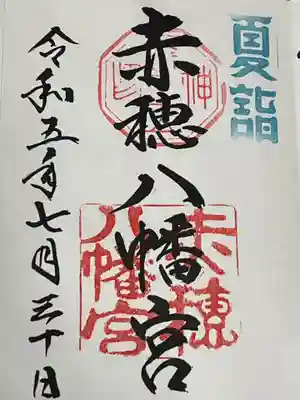 夏詣
赤穂八幡宮
令和五年七月三十日
赤穂
八幡宮